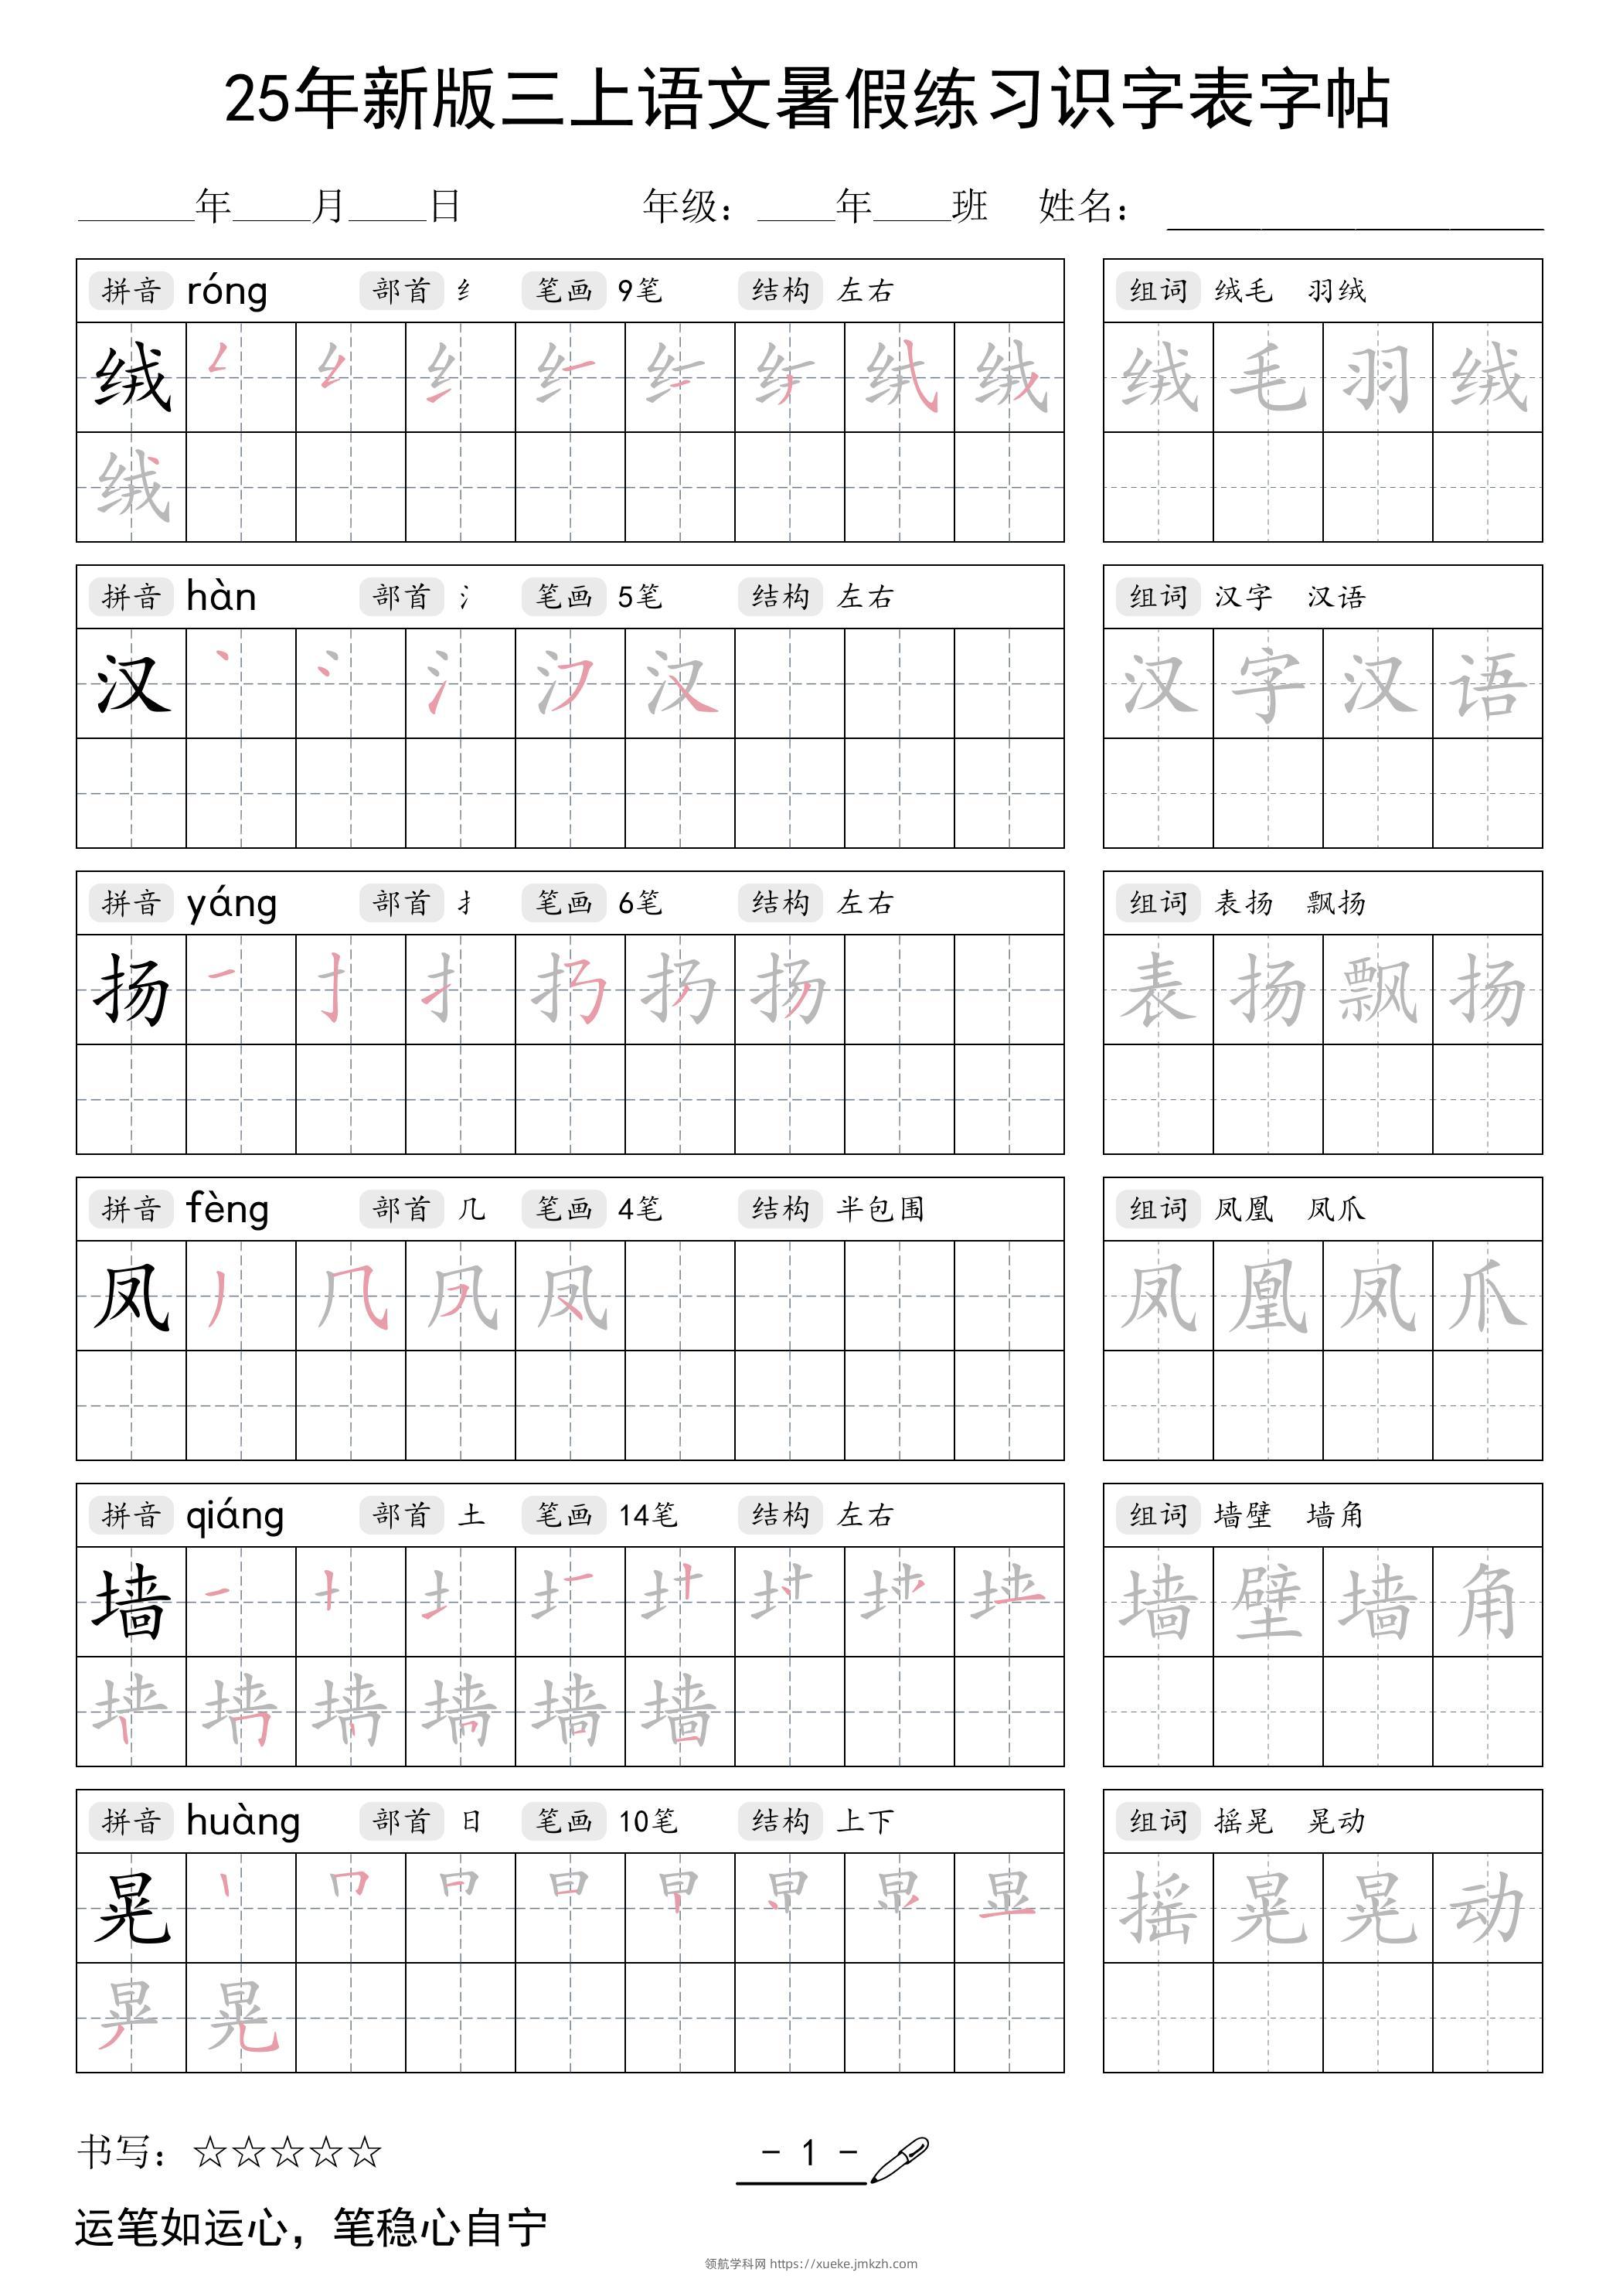 25年新版三上语文暑假练习识字表字帖
年 月 日 年级： 年 班 姓名：
拼音 róng 部首 纟 笔画 9笔 结构 左右 组词 绒毛 羽绒
绒 绒毛羽绒
绒
拼音 hàn 部首 氵 笔画 5笔 结构 左右 组词 汉字 汉语
汉 汉 汉字汉语
拼音 yáng 部首 扌 笔画 6笔 结构 左右 组词 表扬 飘扬
扬 扬 表扬飘扬
拼音 fèng 部首 几 笔画 4笔 结构 半包围 组词 凤凰 凤爪
凤 凤 凤凰凤爪
拼音 qiáng 部首 土 笔画 14笔 结构 左右 组词 墙壁 墙角
墙 墙壁墙角
墙
拼音 huàng 部首 日 笔画 10笔 结构 上下 组词 摇晃 晃动
晃 摇晃晃动
晃
书写：☆☆☆☆☆ - 1 -
运笔如运心，笔稳心自宁
领航学科网 https://xueke.jmkzh.com